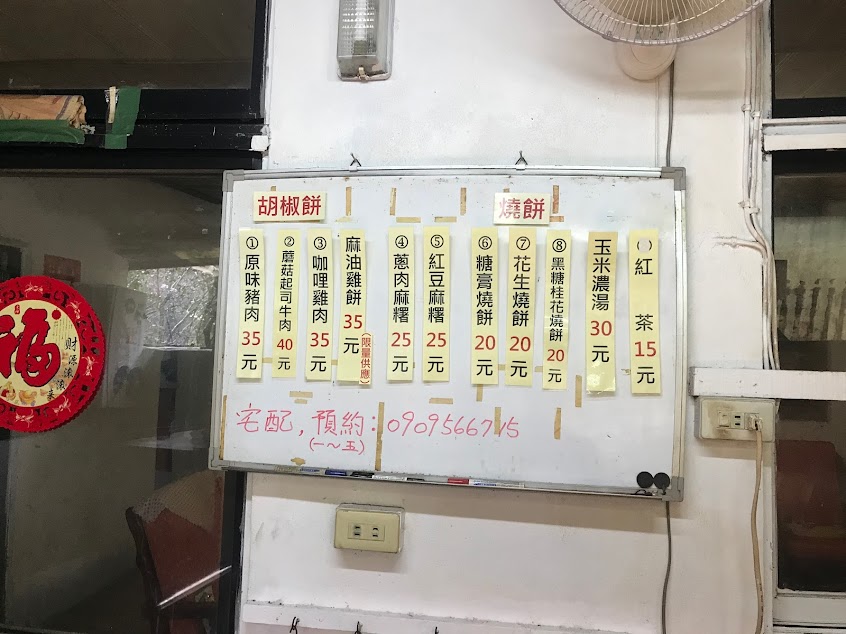 胡椒餅
①原味豬肉35元
②蘑菇起司牛肉40元
③咖哩雞肉35元
麻油雞餅35元(限量供應)
④蔥肉麻糬25元
⑤紅豆麻糬25元
燒餅
⑥糖膏燒餅20元
⑦花生燒餅20元
⑧黑糖桂花燒餅20元
玉米濃湯30元
紅茶15元
宅配,預約:0909566715
(一~五)
福
財源滾滾來